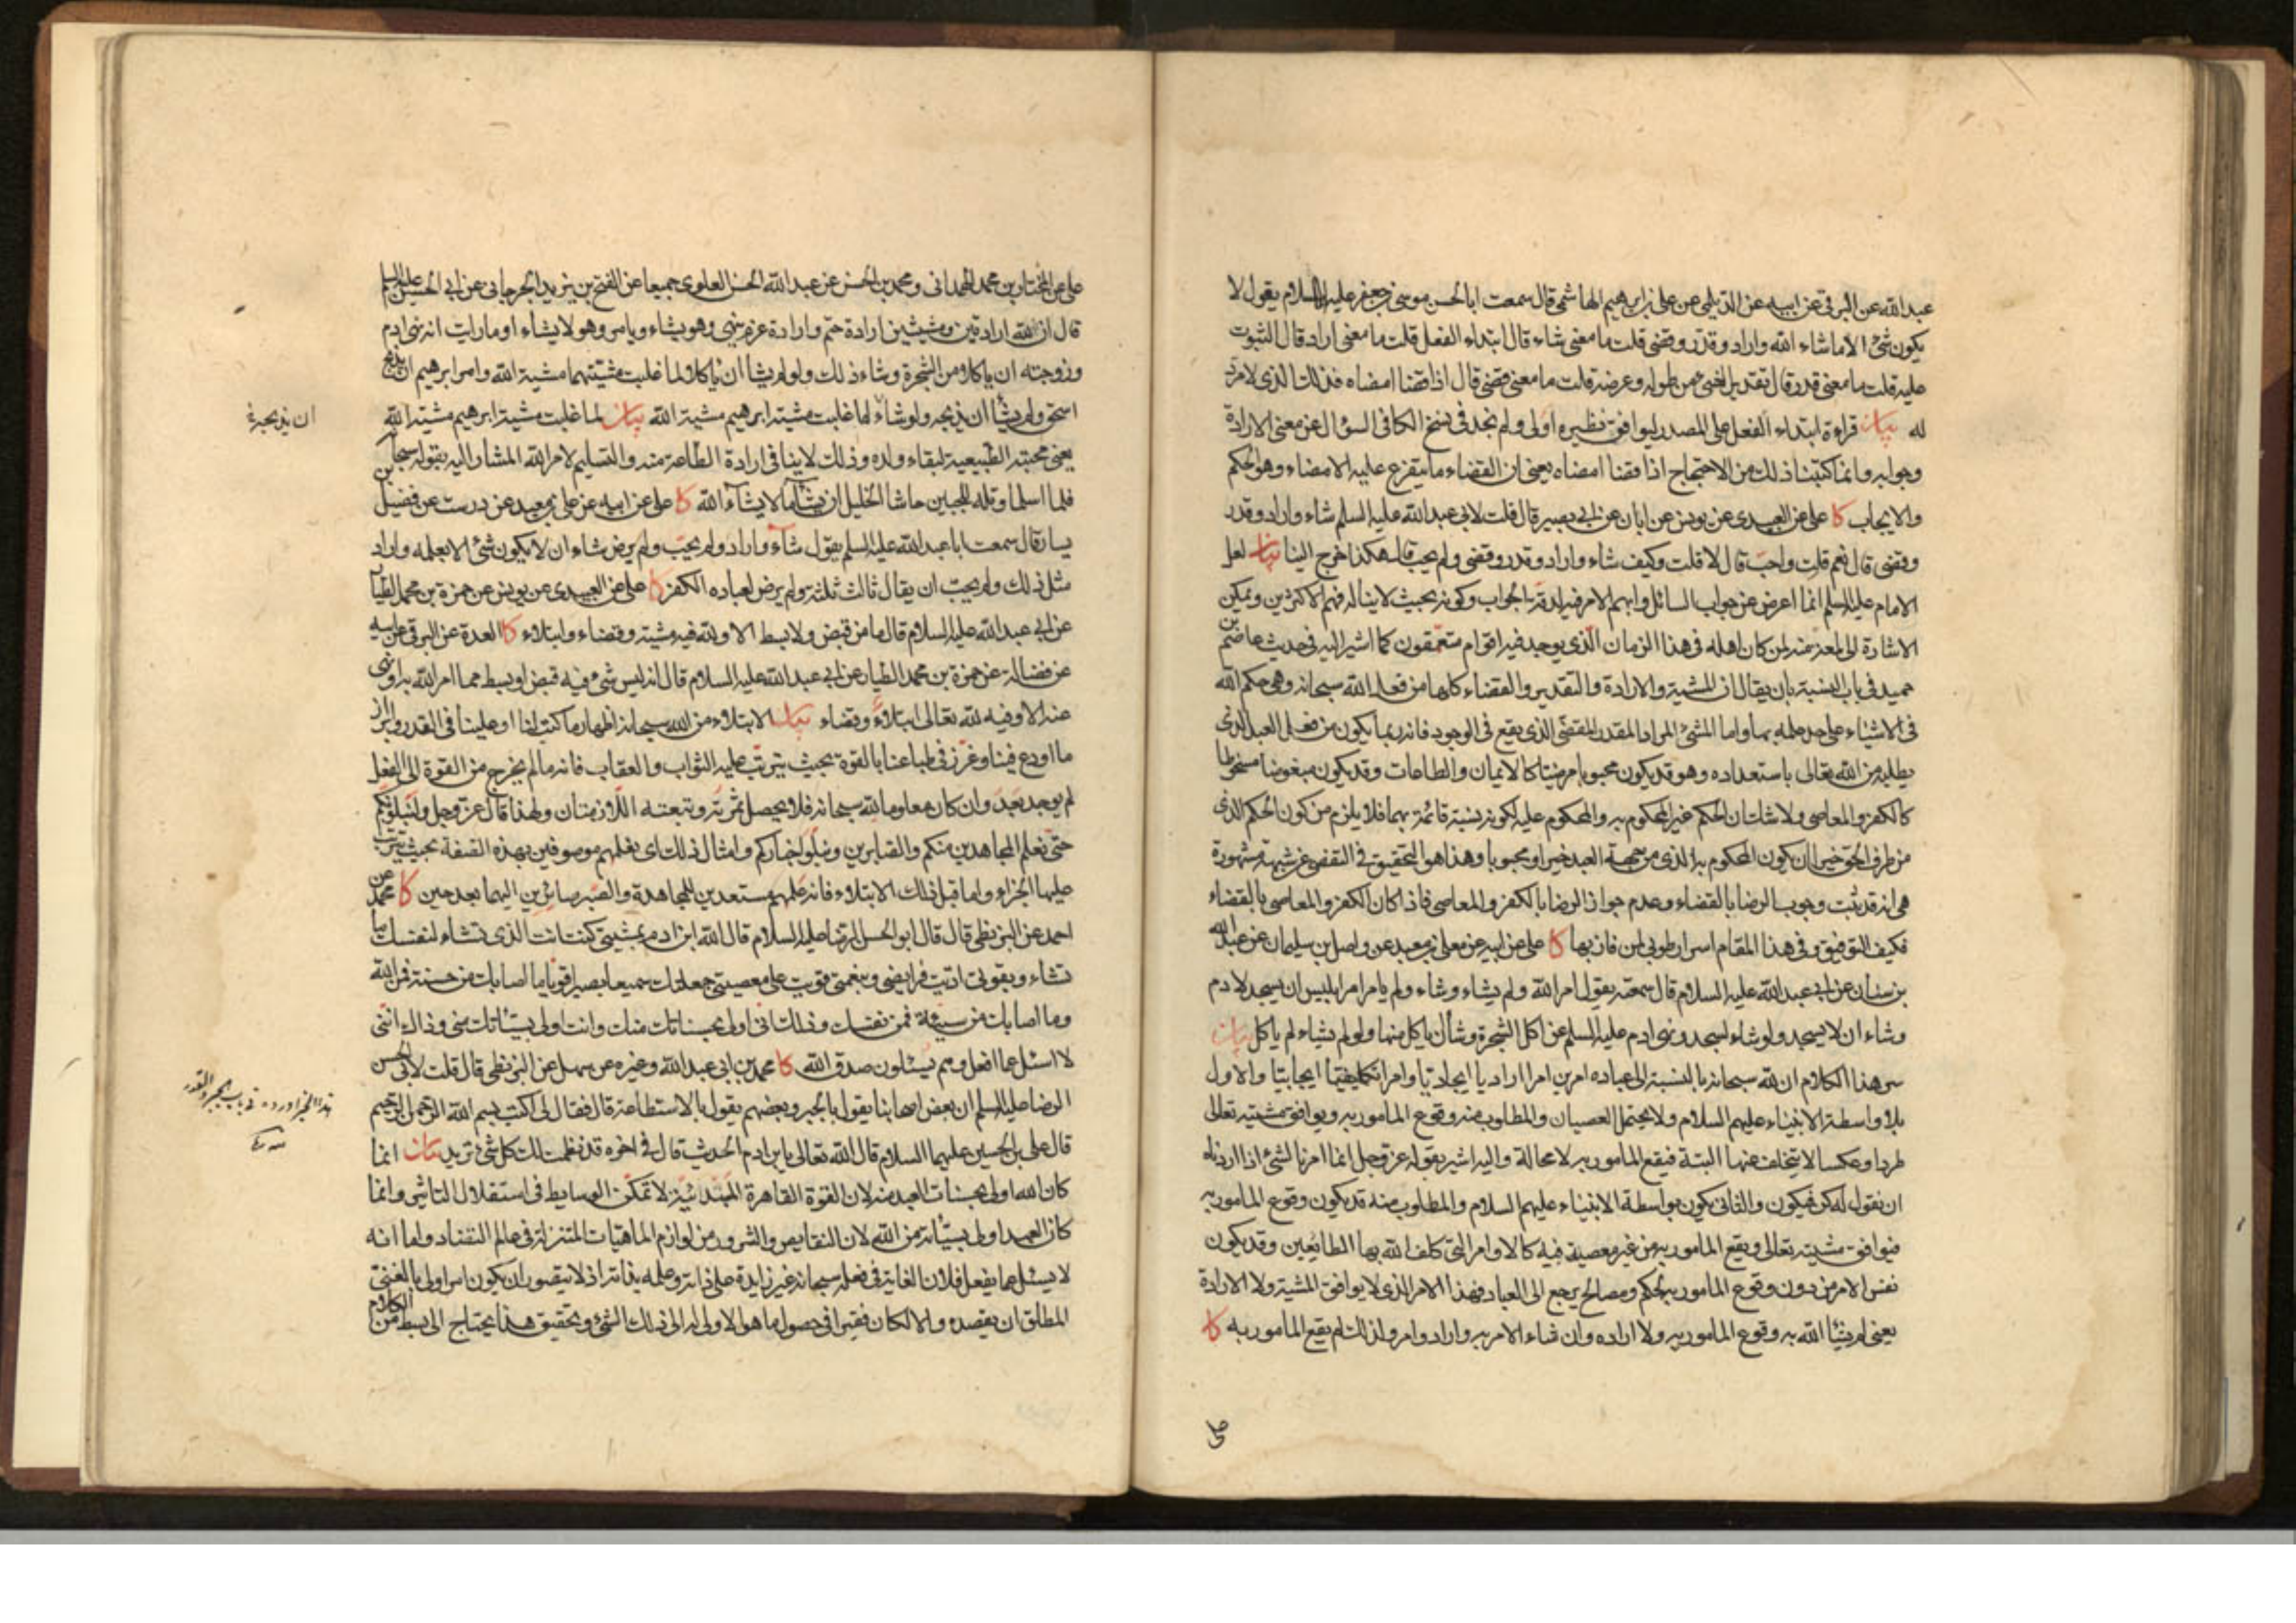 عبد الله عن البرقي عن ابيه عن الديلمي عن علي بن ابرهيم الهاشمي قال سمعت ابا الحسن موسى بن جعفر عليه السلام يقول لا
يكون شئ الا ما شاء الله واراد وقدر وقضى قلت ما معنى شاء قال ابتداء الفعل قلت ما معنى اراد قال الثبوت
عليه قلت ما معنى قدر قال تقدير الشئ من طوله وعرضه قلت ما معنى قضى قال اذا قضا امضاه فذلك الذى لا مرد
له بيان قراءة ابتداء الفعل على المصدر ليوافق نظيره اولى ولم نجد في نسخ الكافي السؤال عن معنى الارادة
وجوابه وانما كتبنا ذلك من الاحتجاج اذا قضا امضاه يعني ان القضاء ما يتفرع عليه الامضاء وهو الحكم
والايجاب كا علي عن العبيدى عن يونس عن ابان عن ابي بصير قال قلت لابي عبد الله عليه السلم شاء واراد وقدر
وقضى قال نعم قلت واحب قال لا قلت وكيف شاء واراد وقدر وقضى ولم يحب قال هكذا خرج الينا بيان لعل
الامام عليه السلم انما اعرض عن جواب السائل وابهم الامر فيه لدقة الجواب وكونه بحيث لا يناله فهم الاكثرين ويمكن
الاشارة الى لمعة منه لمن كان اهله في هذا الزمان الذي يوجد فيه اقوام متعمقون كما اشير اليه في حديث عاصم بن
حميد في باب النسبة بان يقال ان المشية والارادة والتقدير والقضاء كلها من فعل الله سبحانه وهي حكم الله
في الاشياء على حد علمه بها واما المشئ المراد المقدر المقضي الذى يقع في الوجود فانه ربما يكون من فعل العبد الذى
يطلبه من الله تعالى باستعداده وهو قد يكون محبوبا مرضيا كالايمان والطاعات وقد يكون مبغوضا مسخوطا
كالكفر والمعاصي ولا شك ان الحكم غير المحكوم به والمحكوم عليه لكونه نسبة قائمة بهما فلا يلزم من كون الحكم الذى
من طرف الحق خيرا ان يكون المحكوم به الذى من جهة العبد خيرا ومحبوبا وهذا هو التحقيق في التفصي عن شبهة مشهورة
هي انه قد ثبت وجوب الرضا بالقضاء وعدم جواز الرضا بالكفر والمعاصي فاذا كان الكفر والمعاصي بالقضاء
فكيف التوفيق وفي هذا المقام اسرار طوبى لمن فاز بها كا علي عن ابيه عن معبد عن واصل بن سليمان عن عبد الله
بن سنان عن ابي عبد الله عليه السلام قال سمعته يقول امر الله ولم يشاء وشاء ولم يامر امر ابليس ان يسجد لادم
وشاء ان لا يسجد ولو شاء لسجد ونهى ادم عليه السلم عن اكل الشجرة وشاء ان ياكل منها ولو لم يشاء لم ياكل بيان
سر هذا الكلام ان لله سبحانه بالنسبة الى عباده امرين امرا اراديا ايجاديا وامرا تكليفيا ايجابيا والاول
بلا واسطة الانبياء عليهم السلام ولا يحتمل العصيان والمطلوب منه وقوع المامور به ويوافق مشيته تعالى
طردا وعكسا لا يتخلف عنها البتة فيقع المامور به لا محالة واليه اشير بقوله عز وجل انما امرنا لشئ اذا اردناه
ان نقول له كن فيكون والثاني يكون بواسطة الانبياء عليهم السلام والمطلوب منه قد يكون وقوع المامور به
فيوافق مشيته تعالى ويقع المامور به من غير معصية فيه كالاوامر التي كلف الله بها الطايعين وقد يكون
نفس الامر من دون وقوع المامور به لحكم ومصالح يرجع الى العباد فهذا الامر الذى لا يوافق المشية ولا الارادة
يعني لم يشاء الله به وقوع المامور به ولا اراده وان شاء الامر به واراد وامر ولذلك لم يقع المامور به كا
على
علي عن المختار بن محمد الهمداني ومحمد بن الحسن عن عبد الله الحسن العلوى جميعا عن الفتح بن يزيد الجرجاني عن ابي الحسن عليه السلم
قال ان لله ارادتين ومشيتين ارادة حتم وارادة عزم ينهى وهو يشاء ويامر وهو لا يشاء اوما رايت انه نهى ادم
وزوجته ان ياكلا من الشجرة وشاء ذلك ولو لم يشا ان ياكلا لما غلبت مشيتهما مشية الله وامر ابرهيم ان يذبح
اسحق ولم يشأ ان يذبحه ولو شاء لما غلبت مشية ابرهيم مشية الله بيان لما غلبت مشية ابرهيم مشية الله
ان يذبحه
يعني محبته الطبيعية لبقاء ولده وذلك لا ينافي ارادة الطاعة منه والتسليم لامر الله المشار اليه بقوله سبحانه
فلما اسلما وتله للجبين حاشا الخليل ان يشاء ما لا يشاء الله كا علي عن ابيه عن علي بن معبد عن درست عن فضيل بن
يسار قال سمعت ابا عبد الله عليه السلم يقول شاء واراد ولم يحب ولم يرض شاء ان لا يكون شئ الا بعلمه واراد
مثل ذلك ولم يحب ان يقال ثالث ثلثة ولم يرض لعباده الكفر كا علي عن العبيدى عن يونس عن حمزة بن محمد الطيار
عن ابي عبد الله عليه السلام قال ما من قبض ولا بسط الا ولله فيه مشية وقضاء وابتلاء كا العدة عن البرقي عن ابيه
عن فضالة عن حمزة بن محمد الطيار عن ابي عبد الله عليه السلام قال انه ليس شئ فيه قبض او بسط مما امر الله به او نهى
عنه الا وفيه لله تعالى ابتلاء وقضاء بيان الابتلاء من الله سبحانه اظهار ما كتب لنا او علينا في القدر وابراز
ما اودع فينا وغرز في طباعنا بالقوة بحيث يترتب عليه الثواب والعقاب فانه ما لم يخرج من القوة الى الفعل
لم يوجد بعد وان كان معلوما لله سبحانه فلا يحصل ثمرته وتبعته اللازمتان ولهذا قال عز وجل ولنبلونكم
حتى نعلم المجاهدين منكم والصابرين ونبلو اخباركم وامثال ذلك اى نعلمهم موصوفين بهذه الصفة بحيث يترتب
عليها الجزاء واما قبل ذلك الابتلاء فانه علمهم مستعدين للمجاهدة والصبر صائرين اليهما بعد حين كا محمد عن
احمد عن البزنطي قال قال ابو الحسن الرضا عليه السلام قال الله ابن ادم بمشيتي كنت انت الذى تشاء لنفسك ما
تشاء وبقوتي اديت فرايضي وبنعمتي قويت على معصيتي جعلتك سميعا بصيرا قويا ما اصابك من حسنة فمن الله
وما اصابك من سيئة فمن نفسك وذلك اني اولى بحسناتك منك وانت اولى بسيئاتك مني وذاك انني
لا اسئل عما افعل وهم يسئلون صدق الله كا محمد بن ابي عبد الله وغيره عن سهل عن البزنطي قال قلت لابي الحسن
الرضا عليه السلم ان بعض اصحابنا يقول بالجبر وبعضهم يقول بالاستطاعة قال فقال لي اكتب بسم الله الرحمن الرحيم
هذا الخبر اورده في باب الجبر والقدر
قال علي بن الحسين عليهما السلام قال الله تعالى يا بن ادم الحديث قال في اخره قد نظمت لك كل شئ تريد بيان انما
كان الله اولى بحسنات العبد منه لان القوة القاهرة المبتدائية لا تمكن الوسايط في استقلال التاثير وانما
كان العبد اولى بسيئاته من الله لان النقايص والشرور من لوازم الماهيات المتنزلة في عالم التضاد واما انه
لا يسئل عما يفعل فلان الغاية في فعله سبحانه غير زايدة على ذاته وعلمه بذاته اذ لا يتصور ان يكون امر اولى بالغني
المطلق ان يقصده والا لكان فقيرا في حصول ما هو الاولى له الى ذلك الشئ وتحقيق هذا يحتاج الى بسط من الكلام